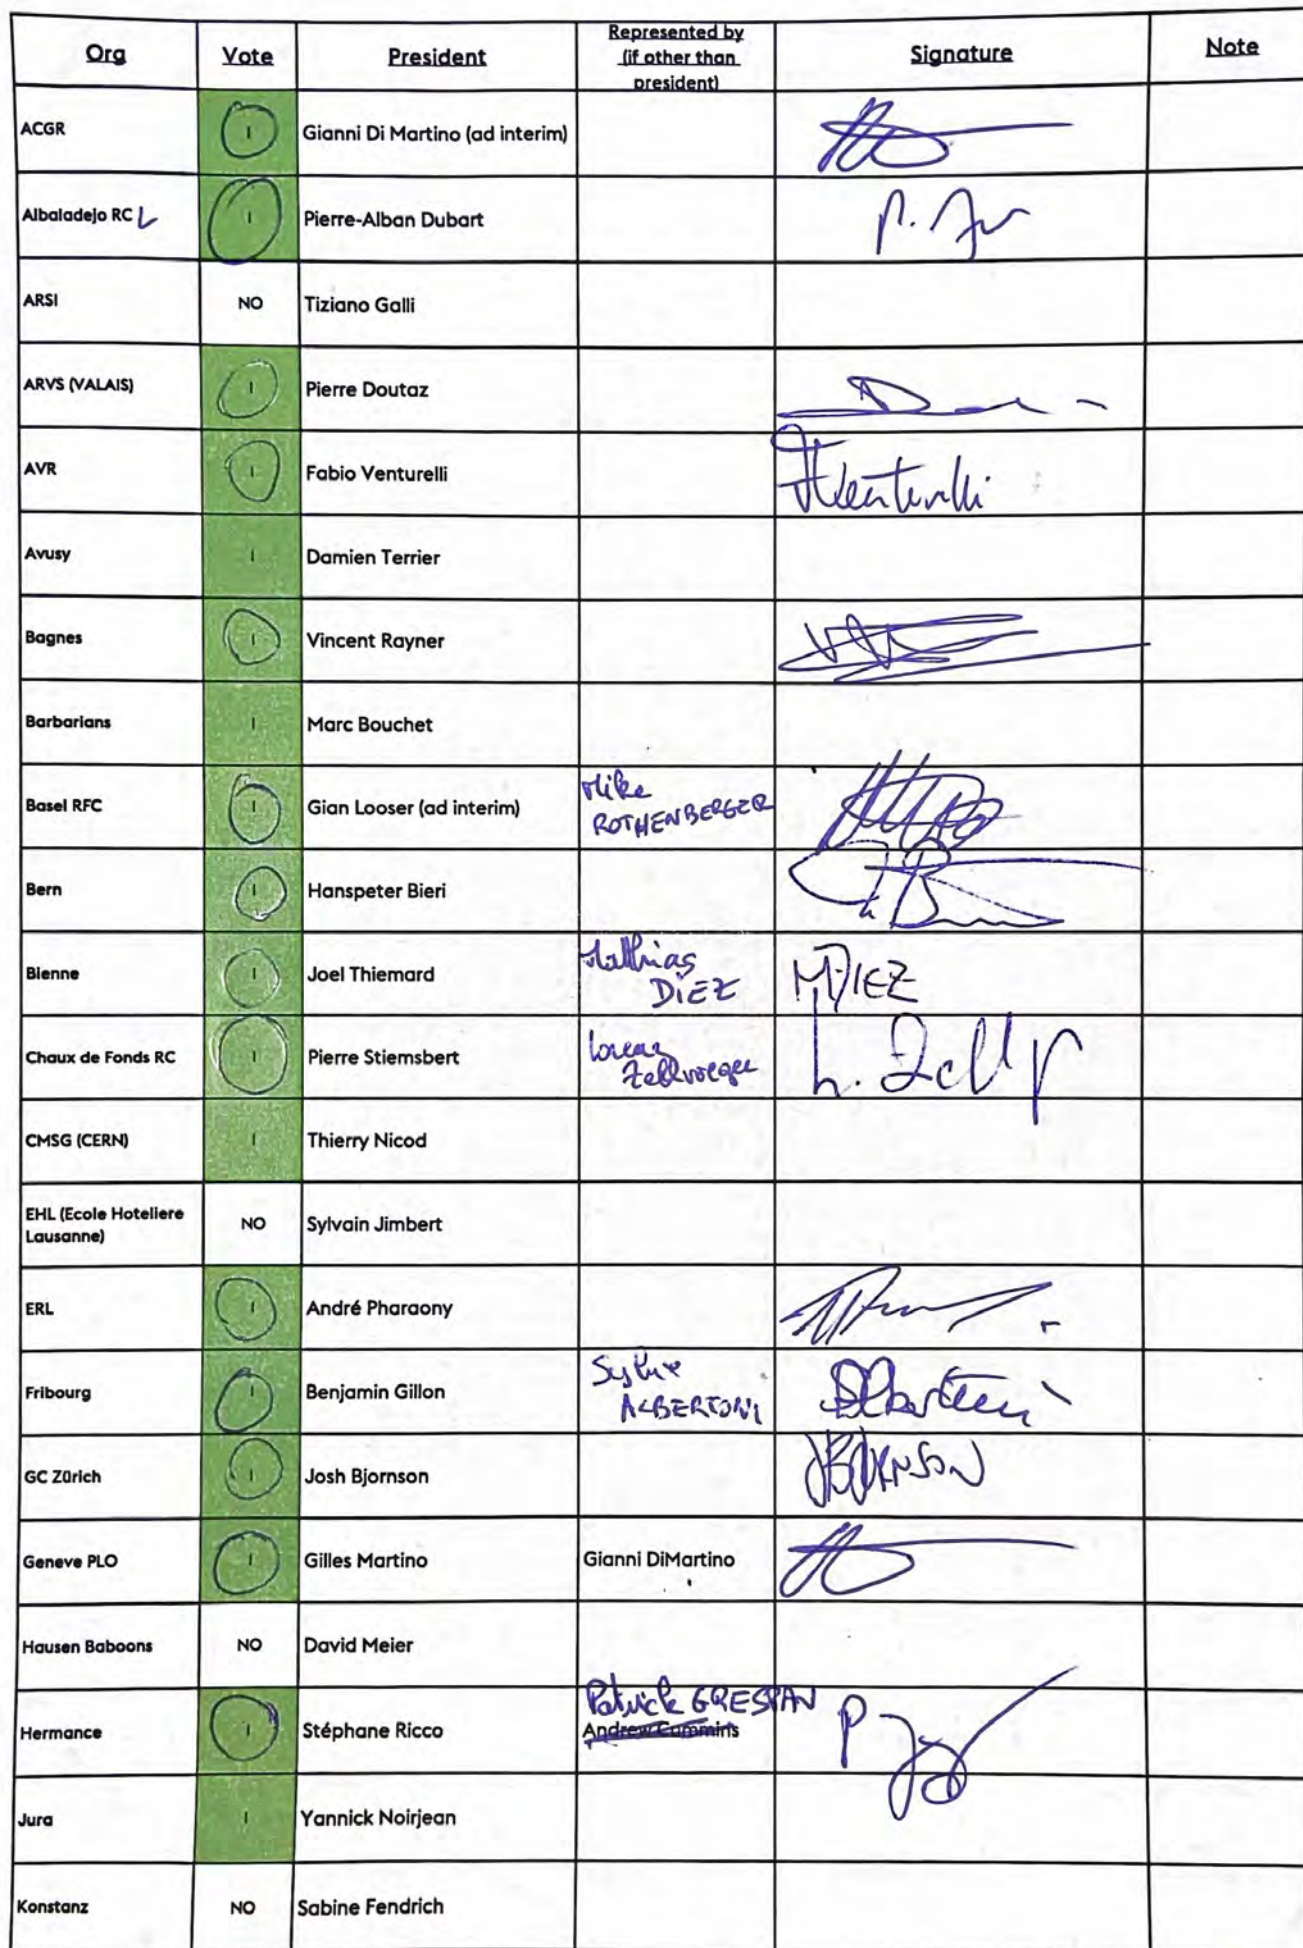 Org Vote President Represented by (if other than president) Signature Note
ACGR 1 Gianni Di Martino (ad interim)
Albaladejo RC 1 Pierre-Alban Dubart
ARSI NO Tiziano Galli
ARVS (VALAIS) 1 Pierre Doutaz
AVR 1 Fabio Venturelli FVenturelli
Avusy 1 Damien Terrier
Bagnes 1 Vincent Rayner
Barbarians 1 Marc Bouchet
Basel RFC 1 Gian Looser (ad interim) Mike ROTHENBERGER
Bern 1 Hanspeter Bieri
Bienne 1 Joel Thiemard Mathias DIEZ M DIEZ
Chaux de Fonds RC 1 Pierre Stiemsbert Lorenz Zellweger
CMSG (CERN) 1 Thierry Nicod
EHL (Ecole Hoteliere Lausanne) NO Sylvain Jimbert
ERL 1 André Pharaony
Fribourg 1 Benjamin Gillon Sylvie ALBERTONI
GC Zürich 1 Josh Bjornson JBJORNSON
Geneve PLO 1 Gilles Martino Gianni DiMartino
Hausen Baboons NO David Meier
Hermance 1 Stéphane Ricco Patrick GRESPAN Andrew Cummins
Jura 1 Yannick Noirjean
Konstanz NO Sabine Fendrich